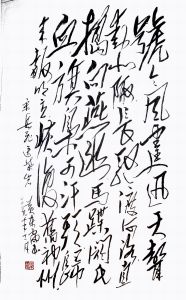 號令風霆迅天聲
動北陬長驅渡河洛直
搗向燕幽馬蹀閼氏
血旗梟可汗頭歸
來報明主恢復舊神州